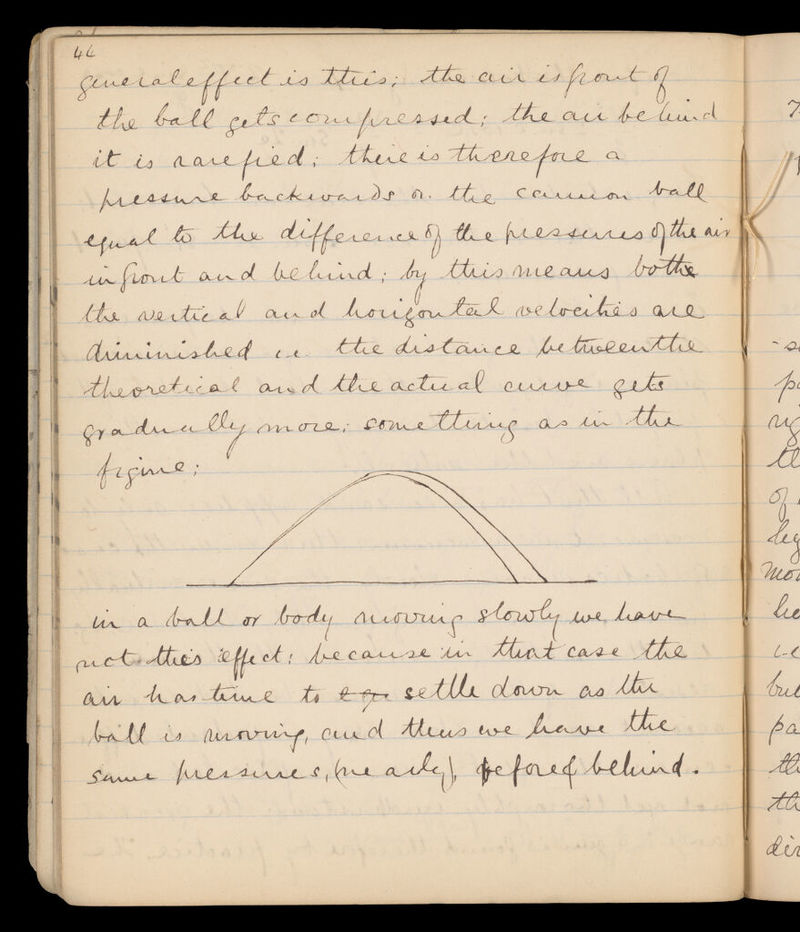 general effect is this; the air is front of
the ball gets compressed; the air behind
it is rarefied; there is therefore a
pressure backwards on the cannon ball
equal to the difference of the pressures of the air
in front and behind; by this means both
the vertical and horizontal velocities are
diminished i.e. the distance between the
theoretical and the actual curve gets
gradually more; something as in the
figure;
in a ball or body moving slowly we have
not this effect; because in that case the
air has time to settle down as the
ball is moving, and thus we have the
same pressures, (nearly), before & behind.